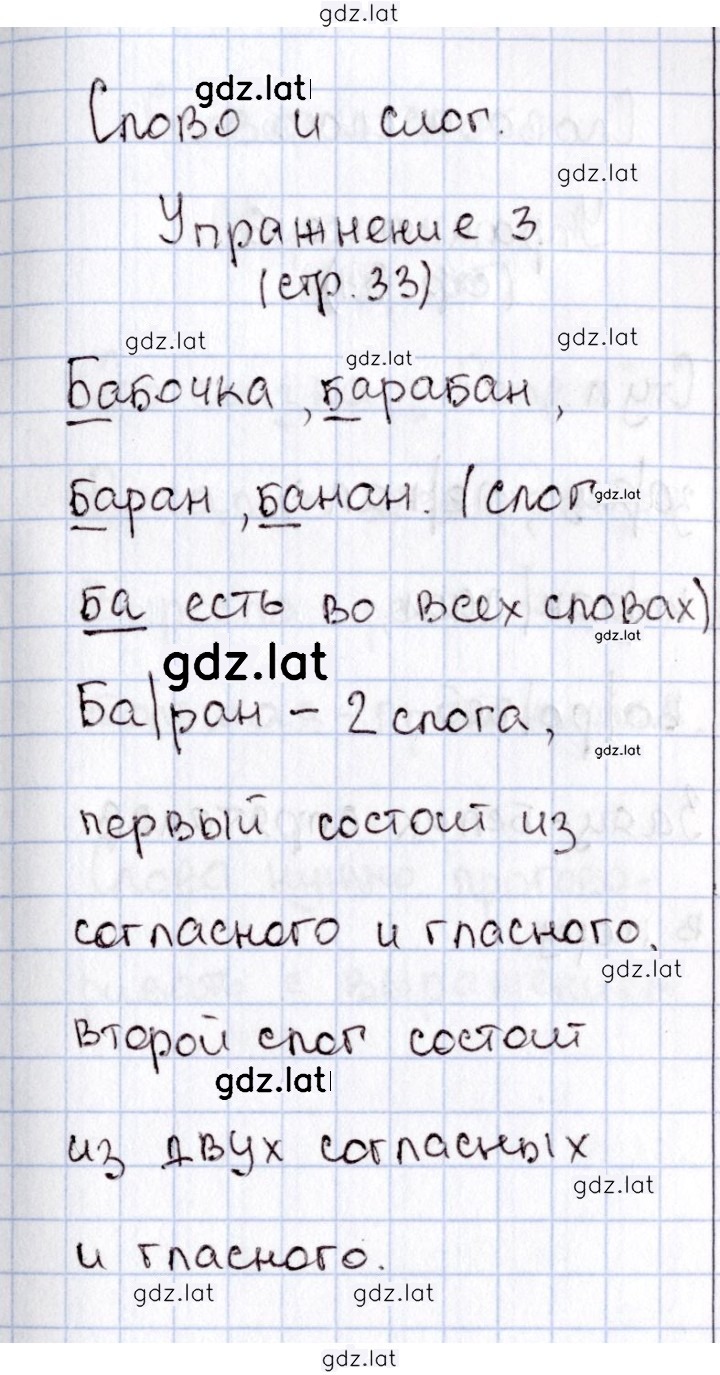 gdz.lat
gdz.lat
Слово и слог.
gdz.lat
Упражнение 3
(стр.33)
gdz.lat
gdz.lat
gdz.lat
Бабочка, барабан,
баран, банан. (слог
gdz.lat
ба есть во всех словах)
gdz.lat
gdz.lat
Ба|ран - 2 слога,
gdz.lat
первый состоит из
согласного и гласного.
gdz.lat
второй слог состоит
gdz.lat
из двух согласных
gdz.lat
и гласного.
gdz.lat gdz.lat
gdz.lat